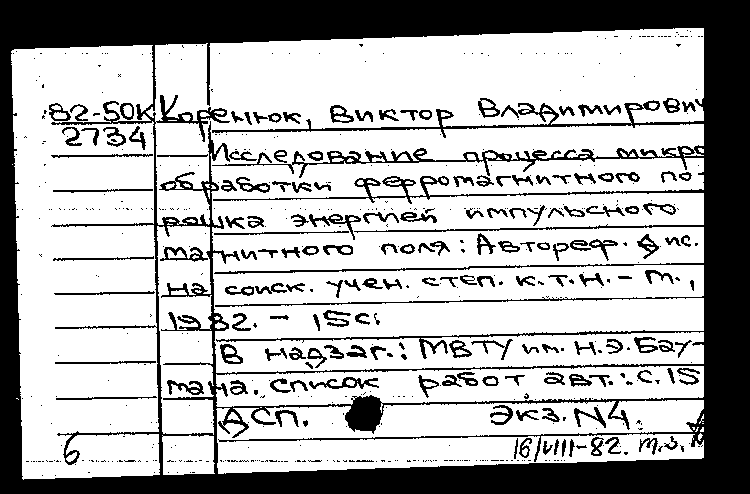 82-50К Коренюк, Виктор Владимирович
2734
Исследование процесса микро
обработки ферромагнитного по-
рошка энергией импульсного
магнитного поля: Автореф. дис.
на соиск. учен. степ. к.т.н. - М.,
1982. - 15с.
В надзаг.: МВТУ им. Н.Э.Бау-
мана. Список работ авт.: с.15
ДСП. Экз. N4.
6 16/VIII-82.